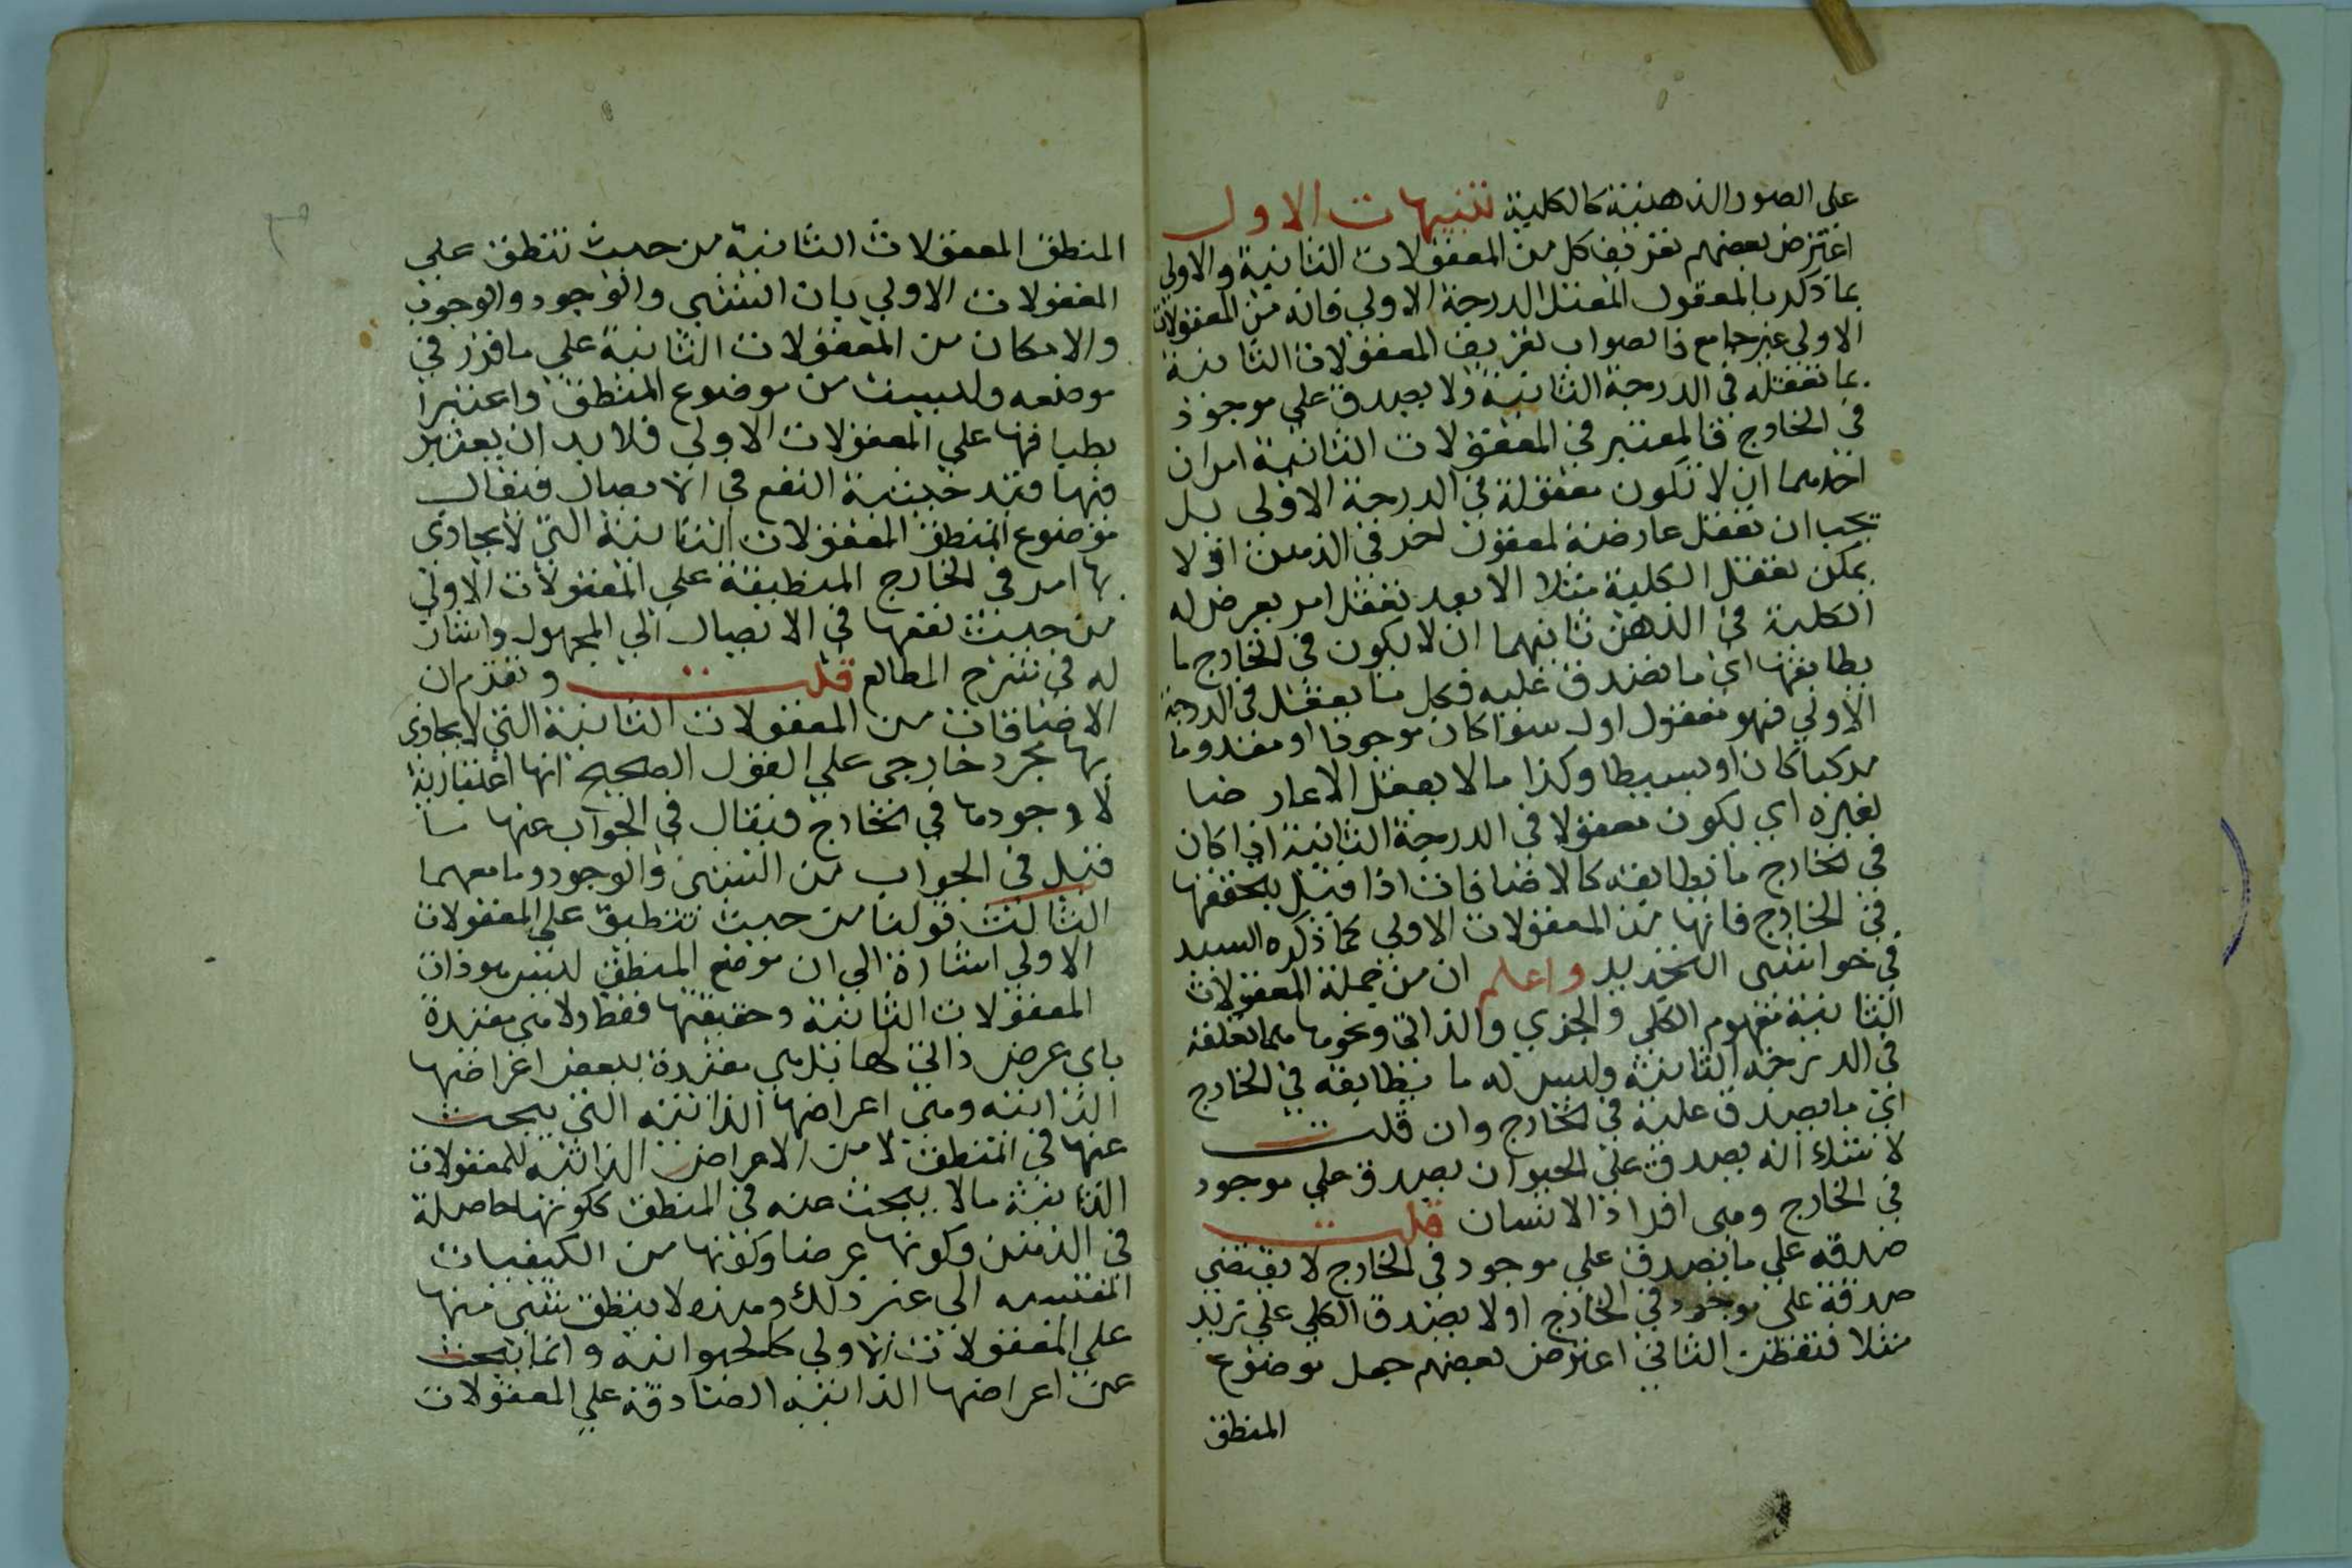 على الصور الذهنية كالكلية تنبيهات الاول
اعترض بعضهم تعريف كل من المعقولات الثانية والاولى
بما ذكر بالمعقول المعتل الدرجة الاولي فانه من المعقولات
الاولي غير جامع فالصواب تعريف المعقولات الثانية
بما تعقله في الدرجة الثانية ولا يصدق علي موجود
في الخارج فالمعتبر في المعقولات الثانية امران
احدهما ان لا تكون معقولة في الدرجة الاولى بل
يجب ان تعقل عارضة لمعقول اخر في الذهن اذ لا
يمكن تعقل الكلية مثلا الا بعد تعقل امر يعرض له
الكلية في الذهن ثانيهما ان لا يكون في الخارج ما
يطابقها اي ما تصدق عليه فكل ما يعقل في الدرجة
الاولي فهو معقول اول سوا كان موجودا او معدوما
مركبا كان او بسيطا وكذا ما لا يعقل الا عارضا
لغيره اي يكون معقولا في الدرجة الثانية اذا كان
في الخارج ما يطابقه كالاضافات اذا قيل بتحققها
في الخارج فانها من المعقولات الاولي كما ذكره السيد
في حواشي التجريد واعلم ان من جملة المعقولات
الثانية مفهوم الكلي والجزي والذاتي ونحوها مما تعلقه
في الدرجه الثانية وليس له ما يطابقه في الخارج
اي ما يصدق عليه في الخارج وان قلت
لا شك انه يصدق على الحيوان يصدق علي موجود
في الخارج وهي افراد الانسان قلت
صدقه علي ما يصدق علي موجود في الخارج لا يقتضي
صدقه علي موجود في الخارج اولا يصدق الكلي علي زيد
مثلا فتفطن الثاني اعترض بعضهم جعل موضوع
المنطق
المنطق المعقولات الثانية من حيث تنطق علي
المعقولات الاولي بان الشي والوجود والوجوب
والامكان من المعقولات الثانية علي ما قرر في
موضعه وليست من موضوع المنطق واعتبرا
بطباقها علي المعقولات الاولي فلا بد ان يعتبر
فيها قيد حيثية النفع في الايصال فيقال
موضوع المنطق المعقولات الثانية التي لا يحاذي
بها امر في الخارج المنطبقة علي المعقولات الاولي
من حيث نفعها في الايصال الي المجهول واشار
له في شرح المطالع قلت وتقدم ان
الاضافات من المعقولات الثانية التي لا يحاذي
بها مجرد خارجي علي القول الصحيح انها اعتبارية
لا وجود ما في الخارج فيقال في الجواب عنها ما
قيل في الجواب عن الشي والوجود وما معهما
الثالث قولنا من حيث تنطبق علي المعقولات
الاولي اشارة الي ان موضع المنطق ليس هو ذات
المعقولات الثانية وحقيقتها فقط ولا هي مقيدة
باي عرض ذاتي لها بل هي مقيدة ببعض اعراضها
الذاتية وهي اعراضها الذاتيه التي يبحث
عنها في المنطق لا من الاعراض الذاتيه للمعقولات
الثانية ما لا يبحث عنه في المنطق ككونها حاصلة
في الذهن وكونها عرضا وكونها من الكيفيات
النفسيه الي غير ذلك وهذه لا ينطق شي منها
علي المعقولات الاولي كالحيوانيه وانما يبحث
عن اعراضها الذاتيه الصادقه علي المعقولات